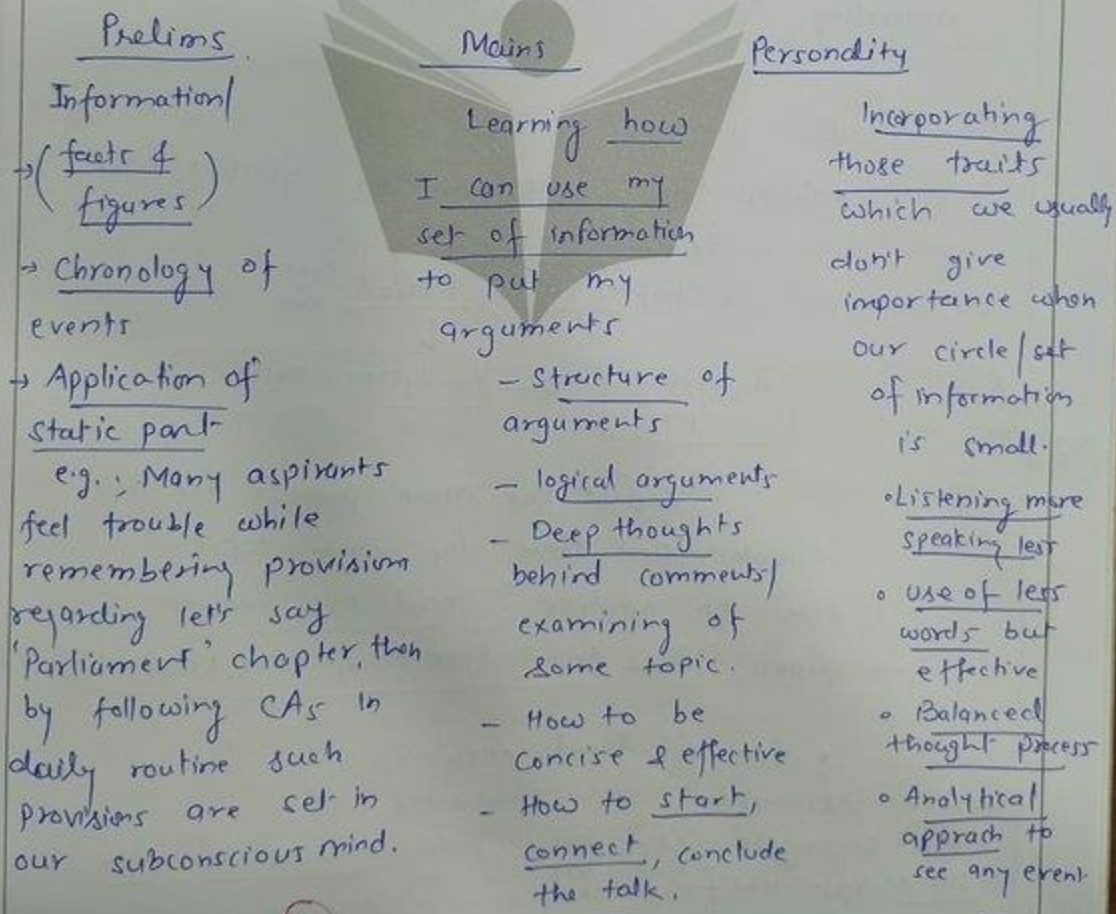 Prelims
Information/
→ ( facts &
figures )
→ Chronology of
events
→ Application of
static part
e.g.; Many aspirants
feel trouble while
remembering provision
regarding let's say
'Parliament' chapter, then
by following CAs in
daily routine such
provisions are set in
our subconscious mind.
Mains
Learning how
I can use my
set of information
to put my
arguments
- Structure of
arguments
- logical arguments
- Deep thoughts
behind comments/
examining of
some topic.
- How to be
concise & effective
- How to start,
connect, conclude
the talk.
Persondity
Incorporating
those traits
which we usually
don't give
importance when
our circle/set
of information
is small.
• Listening more
speaking less
• use of less
words but
effective
• Balanced
thought process
• Analytical
apprach to
see any event